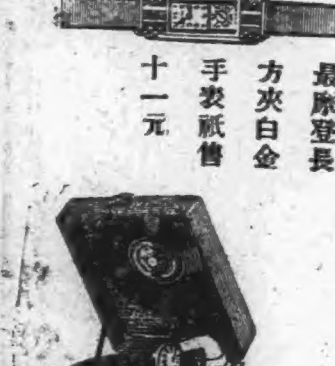 最摩登長
方夾白金
手表祇售
十一元